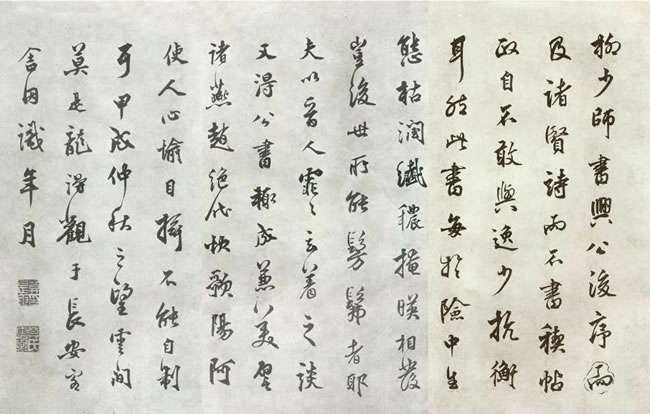 柳少師書興公後序而
及諸賢詩而不書禊帖
政自不敢與逸少抗衡
耳然此書每於險中生
態枯潤纖穠掩暎相發
豈後世所能髣髴者耶
夫以晉人霏〻玄著之談
又得公書輒成兼美譬
諸燕趙絕代歌陽阿
使人心愉目搖不能自制
耳甲戌仲秋之望雲間
莫是龍得觀于長安客
舍因識年月